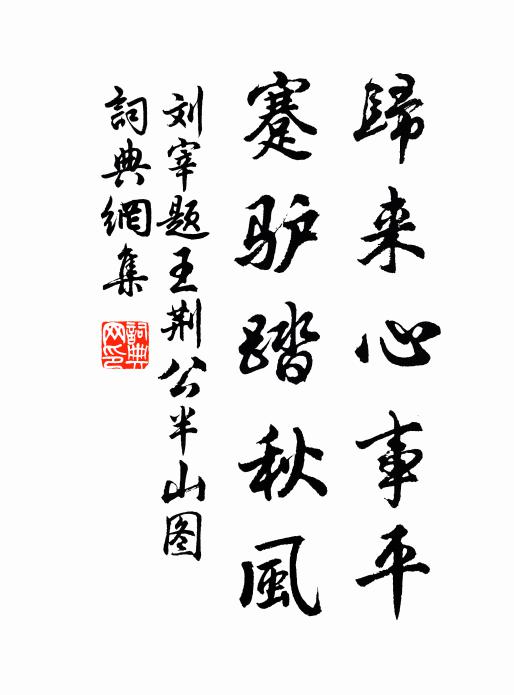 歸来心事平
蹇驴踏秋風
刘宰题王荆公半山图
詞典網集
詞典網印